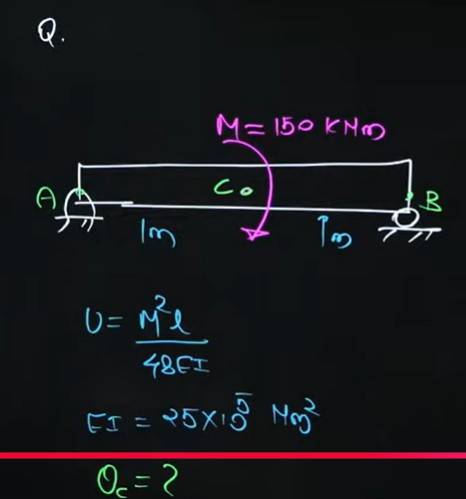 Q.
M = 150 KNm
A C B
1m 1m
U = M²l
48EI
EI = 25×10⁵ Nm²
θc = ?